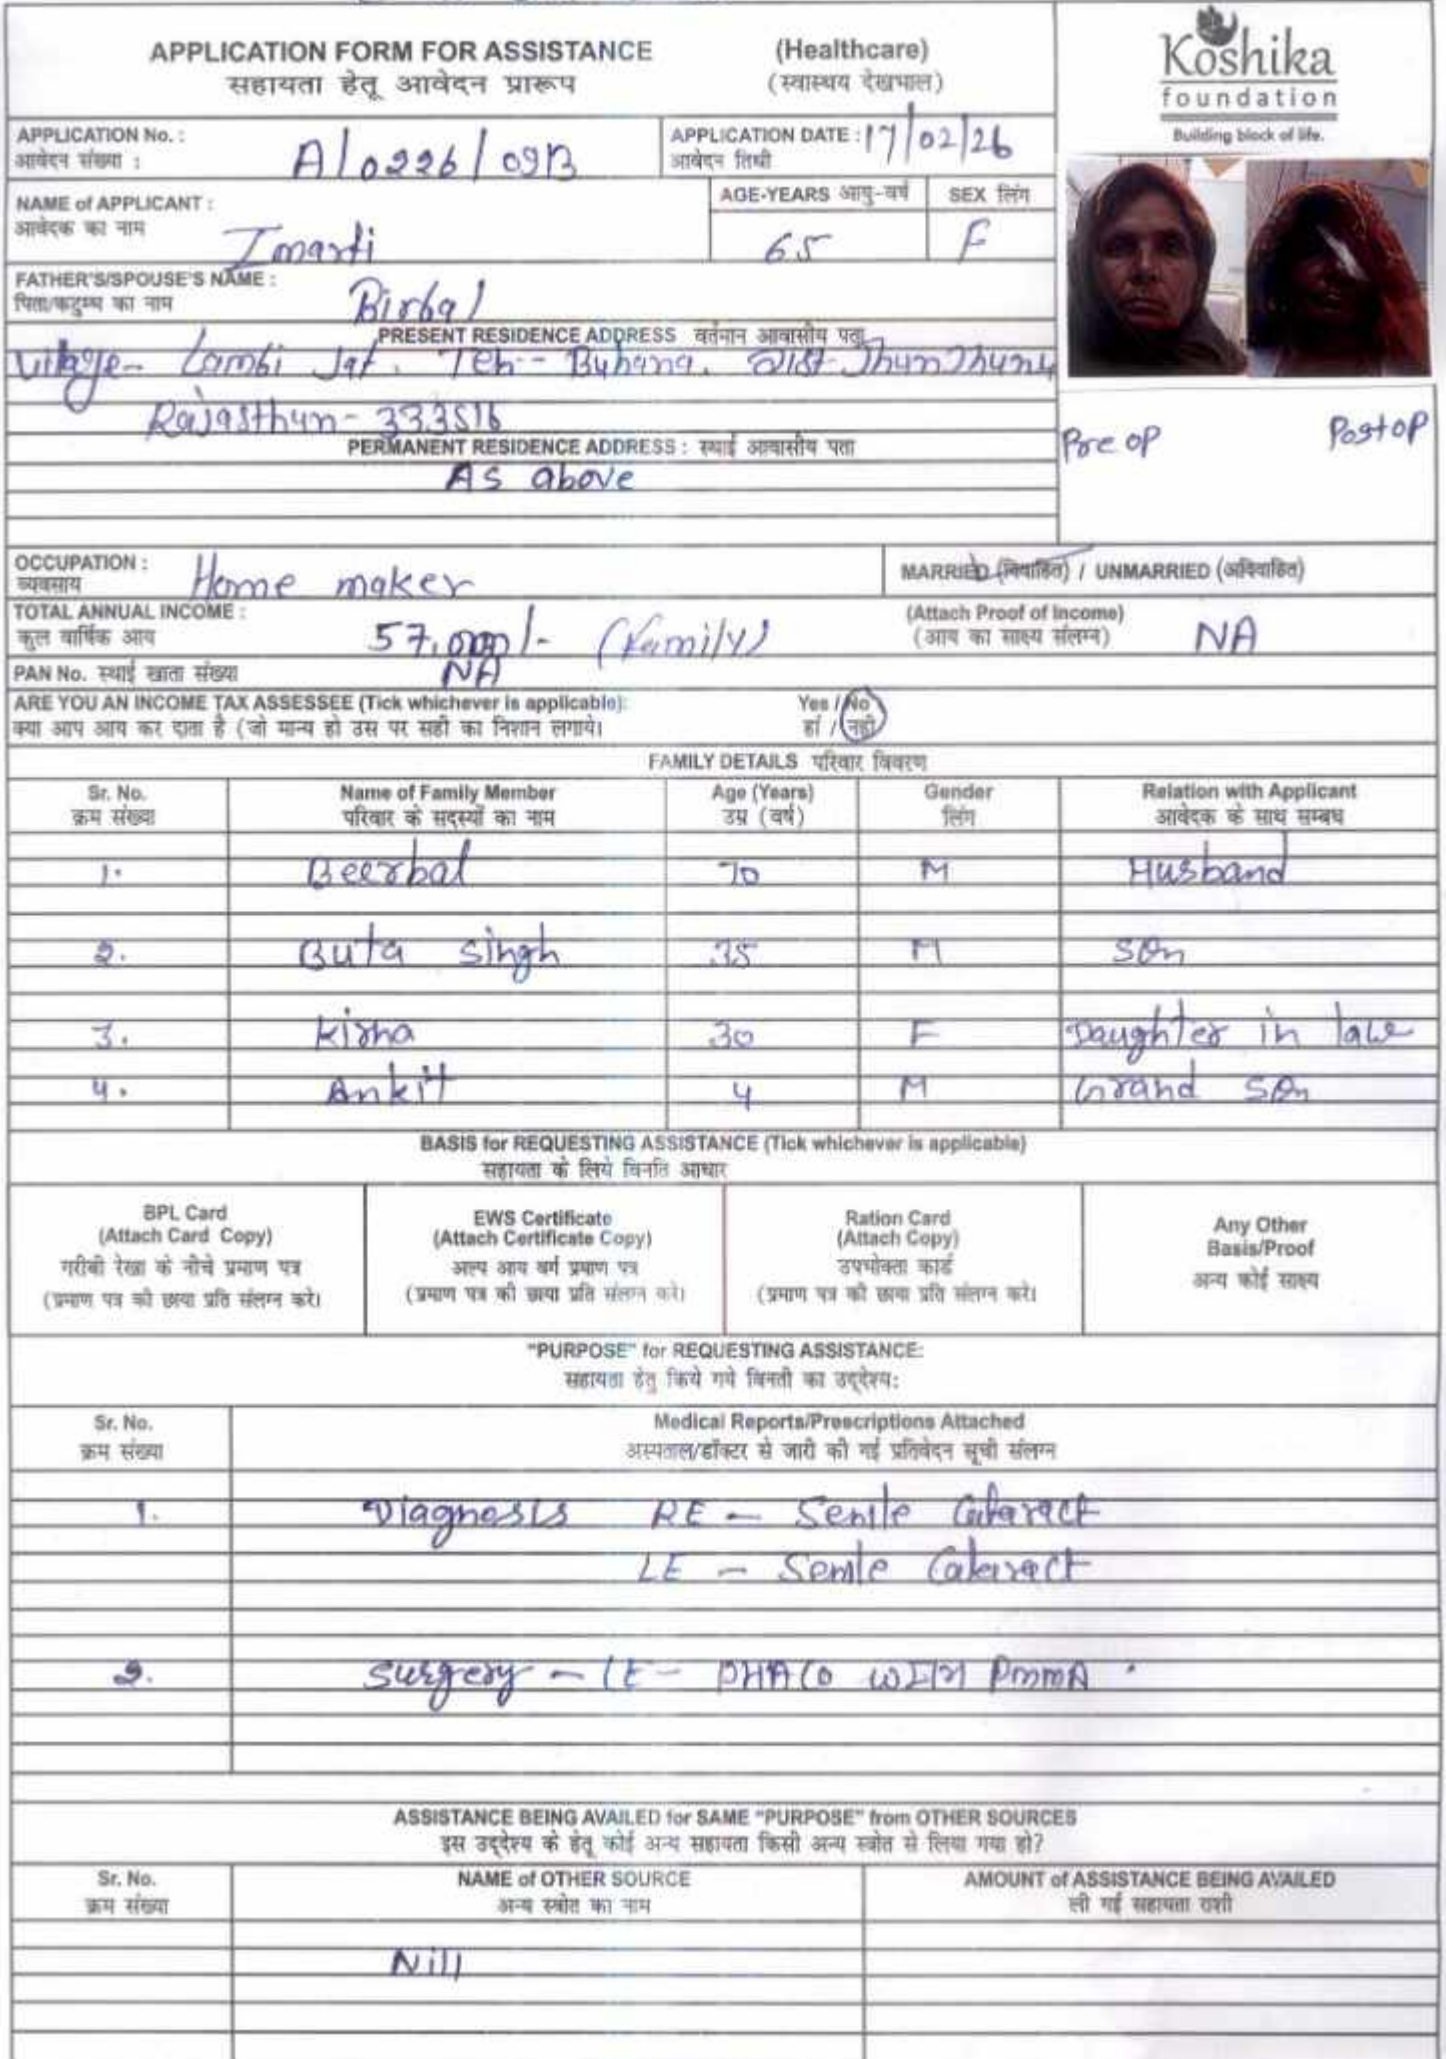 APPLICATION FORM FOR ASSISTANCE (Healthcare)
सहायता हेतू आवेदन प्रारूप (स्वास्थय देखभाल)
Koshika
foundation
Building block of life.
APPLICATION No. : A/0226/09B
आवेदन संख्या :
APPLICATION DATE : 17/02/26
आवेदन तिथी
NAME of APPLICANT :
आवेदक का नाम Imarti
AGE-YEARS आयु-वर्ष
65
SEX लिंग
F
FATHER'S/SPOUSE'S NAME :
पिता/कटुम्ब का नाम Birbal
PRESENT RESIDENCE ADDRESS वर्तमान आवासीय पता
Village- Lambi Jat. Teh-- Buhana. Dist- JhunJhunu
Rajasthan- 333516
PERMANENT RESIDENCE ADDRESS : स्थाई आवासीय पता
As above
Pre op Post op
OCCUPATION :
व्यवसाय Home maker
MARRIED (विवाहित) / UNMARRIED (अविवाहित)
TOTAL ANNUAL INCOME :
कुल वार्षिक आय 57,000/- (Family)
(Attach Proof of Income)
(आय का साक्ष्य संलग्न) NA
PAN No. स्थाई खाता संख्या NA
ARE YOU AN INCOME TAX ASSESSEE (Tick whichever is applicable): Yes / No
क्या आप आय कर दाता है (जो मान्य हो उस पर सही का निशान लगाये। हां / नही
FAMILY DETAILS परिवार विवरण
Sr. No. Name of Family Member Age (Years) Gender Relation with Applicant
क्रम संख्या परिवार के सदस्यों का नाम उम्र (वर्ष) लिंग आवेदक के साथ सम्बध
1. Beerbal 70 M Husband
2. Buta Singh 35 M Son
3. Kirna 30 F Daughter in law
4. Ankit 4 M Grand Son
BASIS for REQUESTING ASSISTANCE (Tick whichever is applicable)
सहायता के लिये विनति आधार
BPL Card
(Attach Card Copy)
गरीबी रेखा के नीचे प्रमाण पत्र
(प्रमाण पत्र की छाया प्रति संलग्न करे।
EWS Certificate
(Attach Certificate Copy)
अल्प आय वर्ग प्रमाण पत्र
(प्रमाण पत्र की छाया प्रति संलग्न करे।
Ration Card
(Attach Copy)
उपभोक्ता कार्ड
(प्रमाण पत्र की छाया प्रति संलग्न करे।
Any Other
Basis/Proof
अन्य कोई साक्ष्य
"PURPOSE" for REQUESTING ASSISTANCE:
सहायता हेतु किये गये विनती का उद्देश्य:
Sr. No. Medical Reports/Prescriptions Attached
क्रम संख्या अस्पताल/डॉक्टर से जारी की गई प्रतिवेदन सूची संलग्न
1. Diagnosis RE - Senile Cataract
LE - Senile Cataract
2. Surgery - LE - PHACO WITH PMMA
ASSISTANCE BEING AVAILED for SAME "PURPOSE" from OTHER SOURCES
इस उद्देश्य के हेतू कोई अन्य सहायता किसी अन्य स्त्रोत से लिया गया हो?
Sr. No. NAME of OTHER SOURCE AMOUNT of ASSISTANCE BEING AVAILED
क्रम संख्या अन्य स्त्रोत का नाम ली गई सहायता राशी
Nill